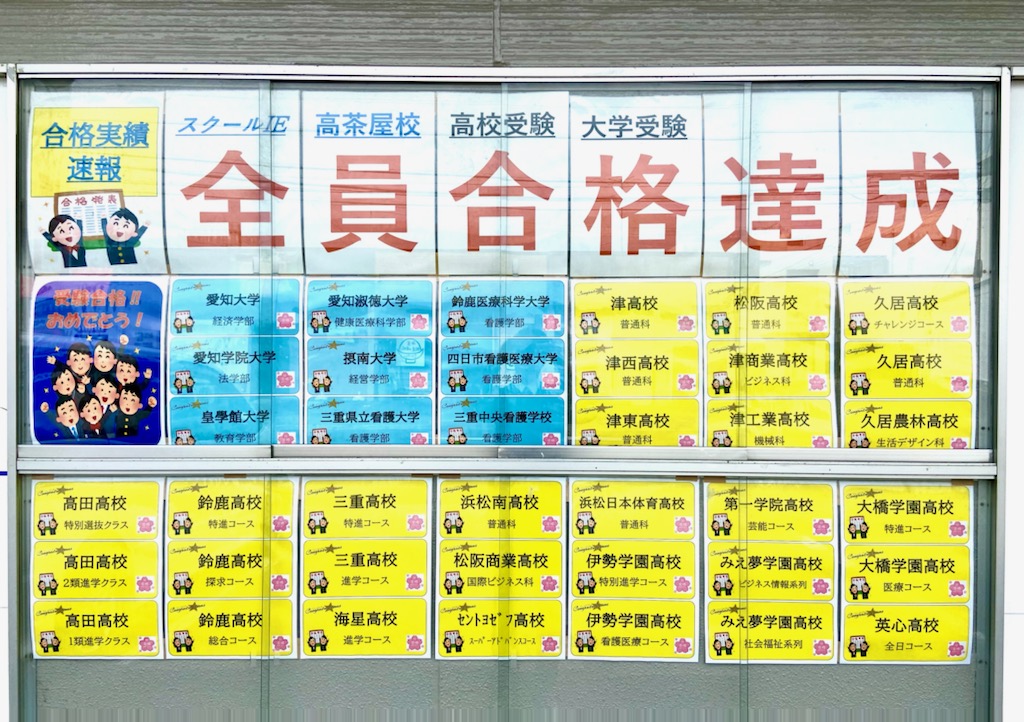 合格実績
速報
合格発表
スクールIE
高茶屋校
高校受験
大学受験
全員合格達成
受験合格!!
おめでとう!
愛知大学
経済学部
愛知学院大学
法学部
皇學館大学
教育学部
愛知淑徳大学
健康医療科学部
摂南大学
経営学部
三重県立看護大学
看護学部
鈴鹿医療科学大学
看護学部
四日市看護医療大学
看護学部
三重中央看護学校
看護学部
津高校
普通科
津西高校
普通科
津東高校
普通科
松阪高校
普通科
津商業高校
ビジネス科
津工業高校
機械科
久居高校
チャレンジコース
久居高校
普通科
久居農林高校
生活デザイン科
高田高校
特別選抜クラス
高田高校
2類進学クラス
高田高校
1類進学クラス
鈴鹿高校
特進コース
鈴鹿高校
探求コース
鈴鹿高校
総合コース
三重高校
特進コース
三重高校
進学コース
海星高校
進学コース
浜松南高校
普通科
松阪商業高校
国際ビジネス科
セントヨゼフ高校
スーパーアドバンスコース
浜松日本体育高校
普通科
伊勢学園高校
特別進学コース
伊勢学園高校
看護医療コース
第一学院高校
芸能コース
みえ夢学園高校
ビジネス情報系列
みえ夢学園高校
社会福祉系列
大橋学園高校
特進コース
大橋学園高校
医療コース
英心高校
全日コース